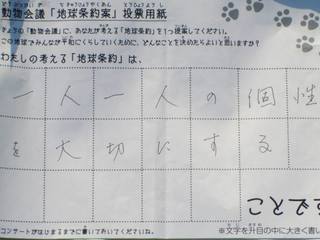 動物会議「地球条約案」投票用紙
きょうの「動物会議」に、あなたが考える「地球条約」を1つ提案してください。
この地球でみんなが平和にくらしていくために、どんなことを決めたらよいと思いますか?
わたしの考える「地球条約」は、
一人一人の個性
を大切にする
※文字を升目の中に大きく書い
コンサートがはじまるまでに書いておいてくださいね。